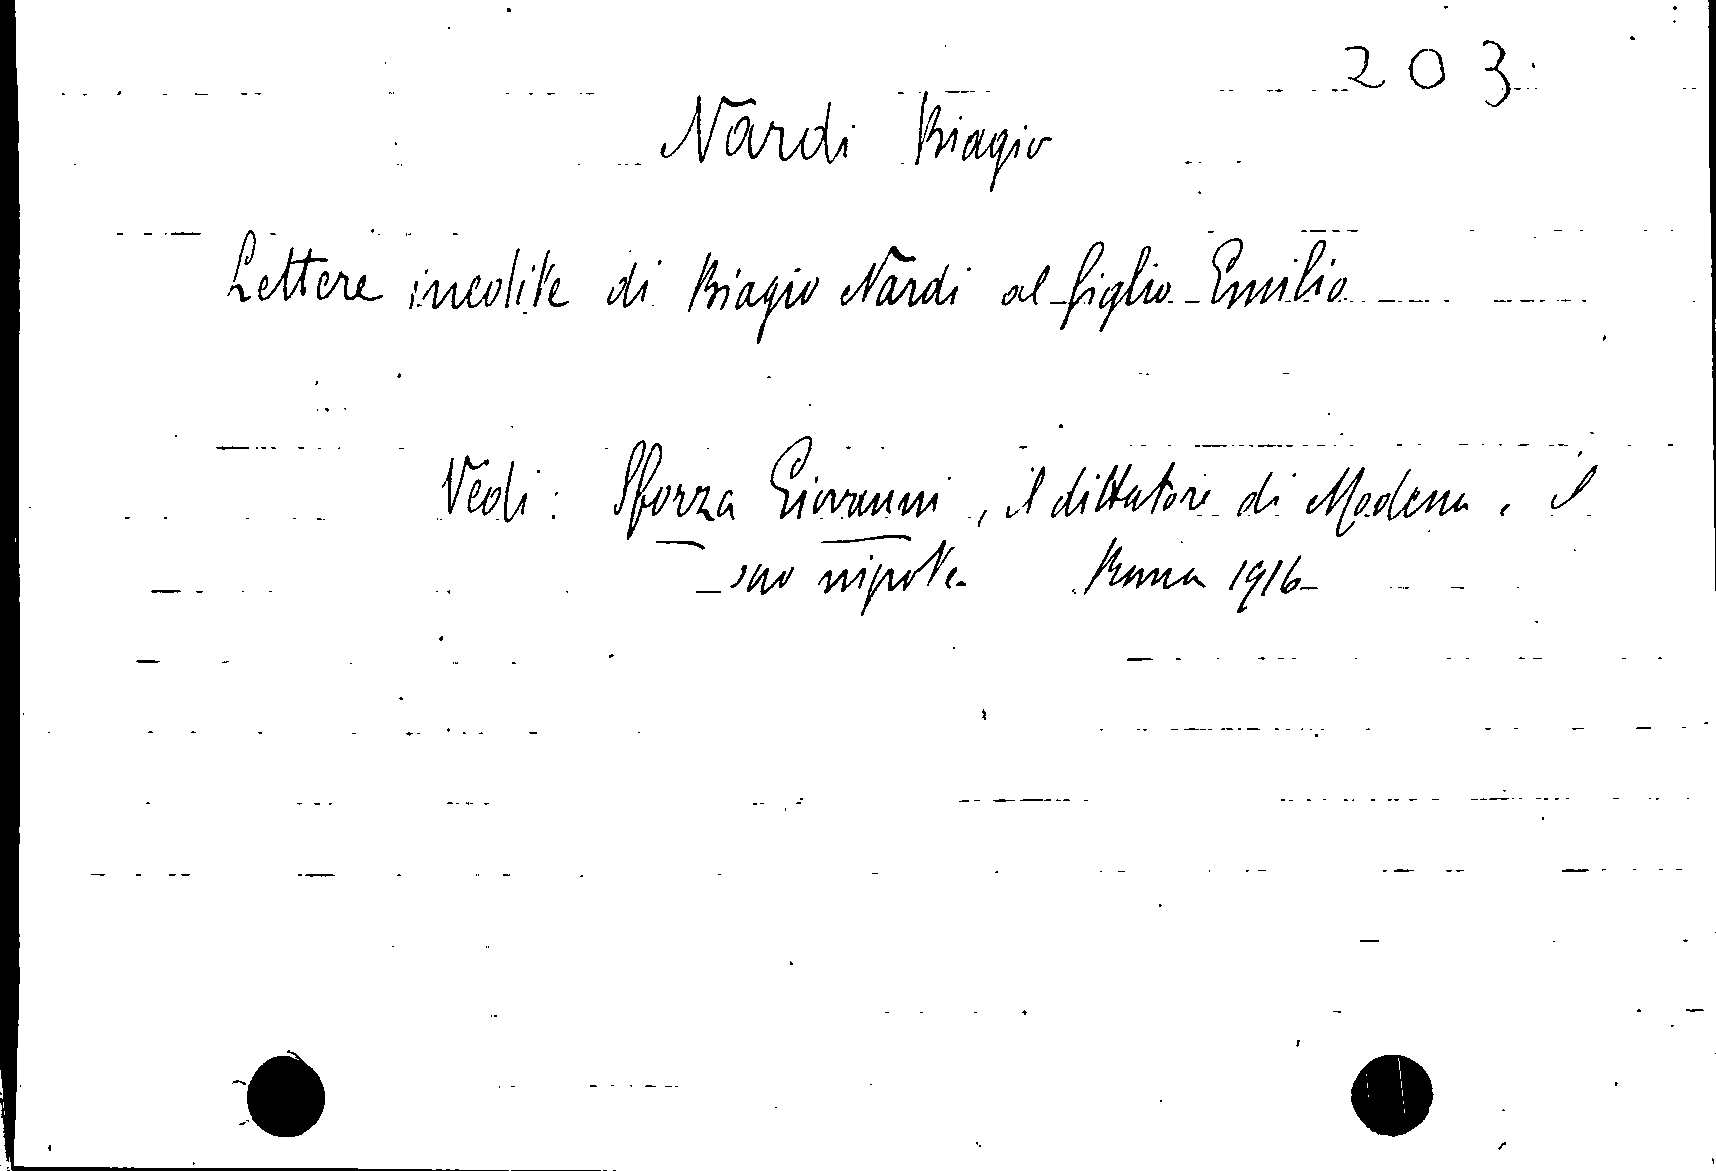 203
Nardi Biagio
Lettere inedite di Biagio Nardi al figlio Emilio
Vedi: Sforza Giovanni, il dittatore di Modena. il
suo nipote. Roma 1916